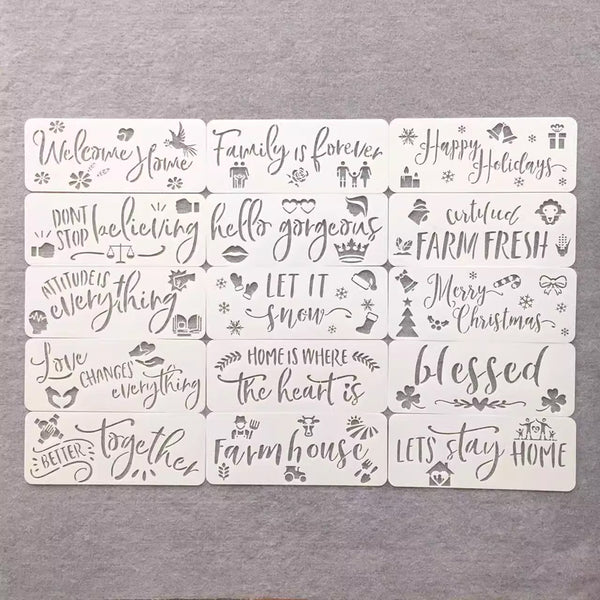 Welcome Home
Family is forever
Happy
Holidays
DONT
STOP believing
hello gorgeous
certified
FARM FRESH
ATTITUDE IS
everything
LET IT
snow
Merry
Christmas
Love
CHANGES
everything
HOME IS WHERE
the heart is
blessed
BETTER together
Farmhouse
LETS stay HOME